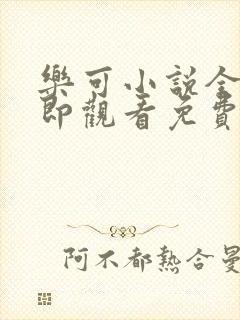 樂可小說全
即觀看免費
阿不都熱合曼